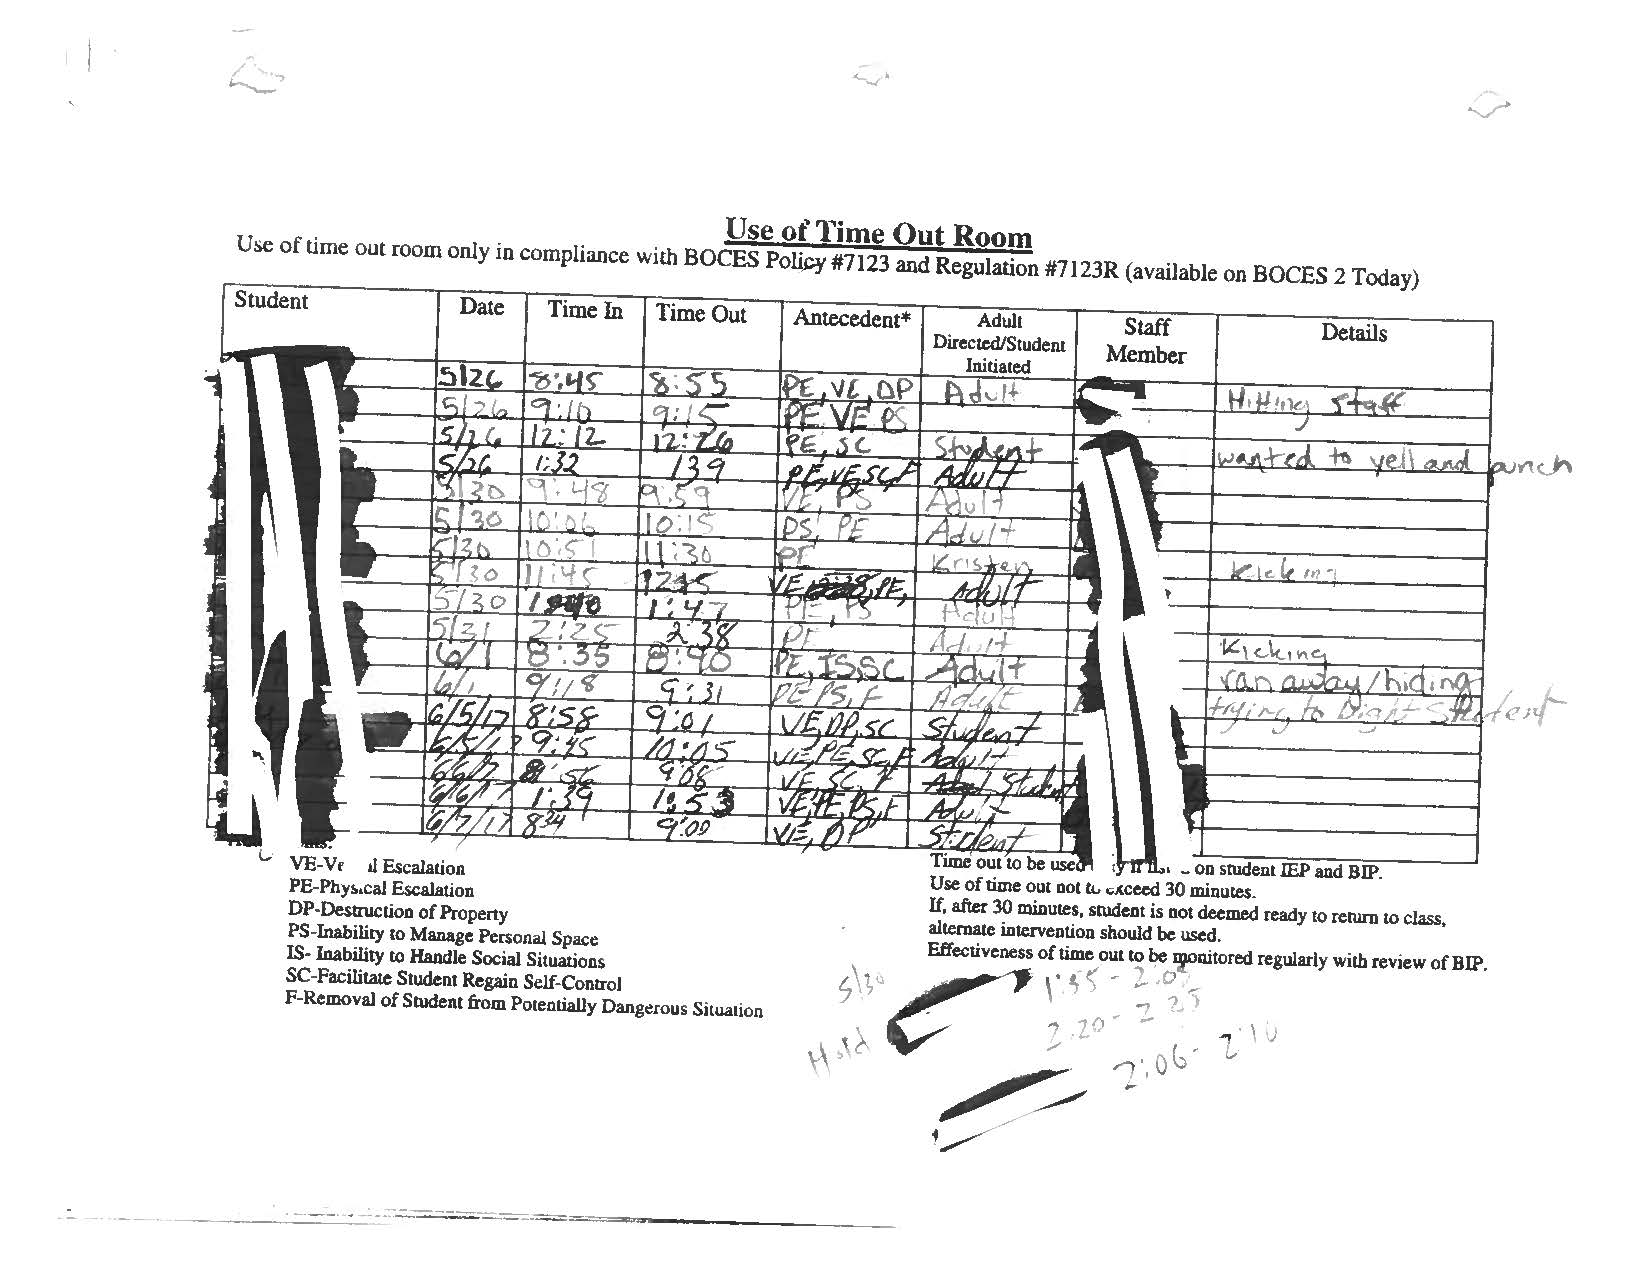 Use of Time Out Room
Use of time out room only in compliance with BOCES Policy #7123 and Regulation #7123R (available on BOCES 2 Today)
Student Date Time In Time Out Antecedent* Adult Directed/Student Initiated Staff Member Details
5/26 8:45 8:55 PE, VE, DP Adult Hitting Staff
5/26 9:10 9:15 PE VE PS
5/26 12:12 12:26 PE, SC Student wanted to yell and punch
5/26 1:32 139 PE, VE, SC, F Adult
5/30 9:48 9:59 VE, PS Adult
5/30 10:06 10:15 PS, PE Adult
5/30 10:51 11:30 PE Kristen
5/30 11:45 1215 VE PE, Adult Kicking
5/30 1:47 PE, PS Adult
5/31 2:25 2:38 PE Adult
6/1 8:35 8:40 PE, IS, SC Adult Kicking
6/1 9:18 9:31 PE PS, F Adult ran away/hiding
6/5/17 8:58 9:01 VE, DP, SC Student trying to Student
6/5/17 9:45 10:05 VE, PE, SC, F Adult
6/6/17 :56 9:08 VE, SC, F Student
6/6/17 1:39 1:53 VE, PE, PS, F Adult
6/7/17 834 9:00 VE, DP Student
VE- Escalation
PE-Physical Escalation
DP-Destruction of Property
PS-Inability to Manage Personal Space
IS- Inability to Handle Social Situations
SC-Facilitate Student Regain Self-Control
F-Removal of Student from Potentially Dangerous Situation
Time out to be used on student IEP and BIP.
Use of time out not to exceed 30 minutes.
If, after 30 minutes, student is not deemed ready to return to class,
alternate intervention should be used.
Effectiveness of time out to be monitored regularly with review of BIP.
5/30 1:55 - 2:05
Hold 2:20 - 2 25
2:06 - 2:10